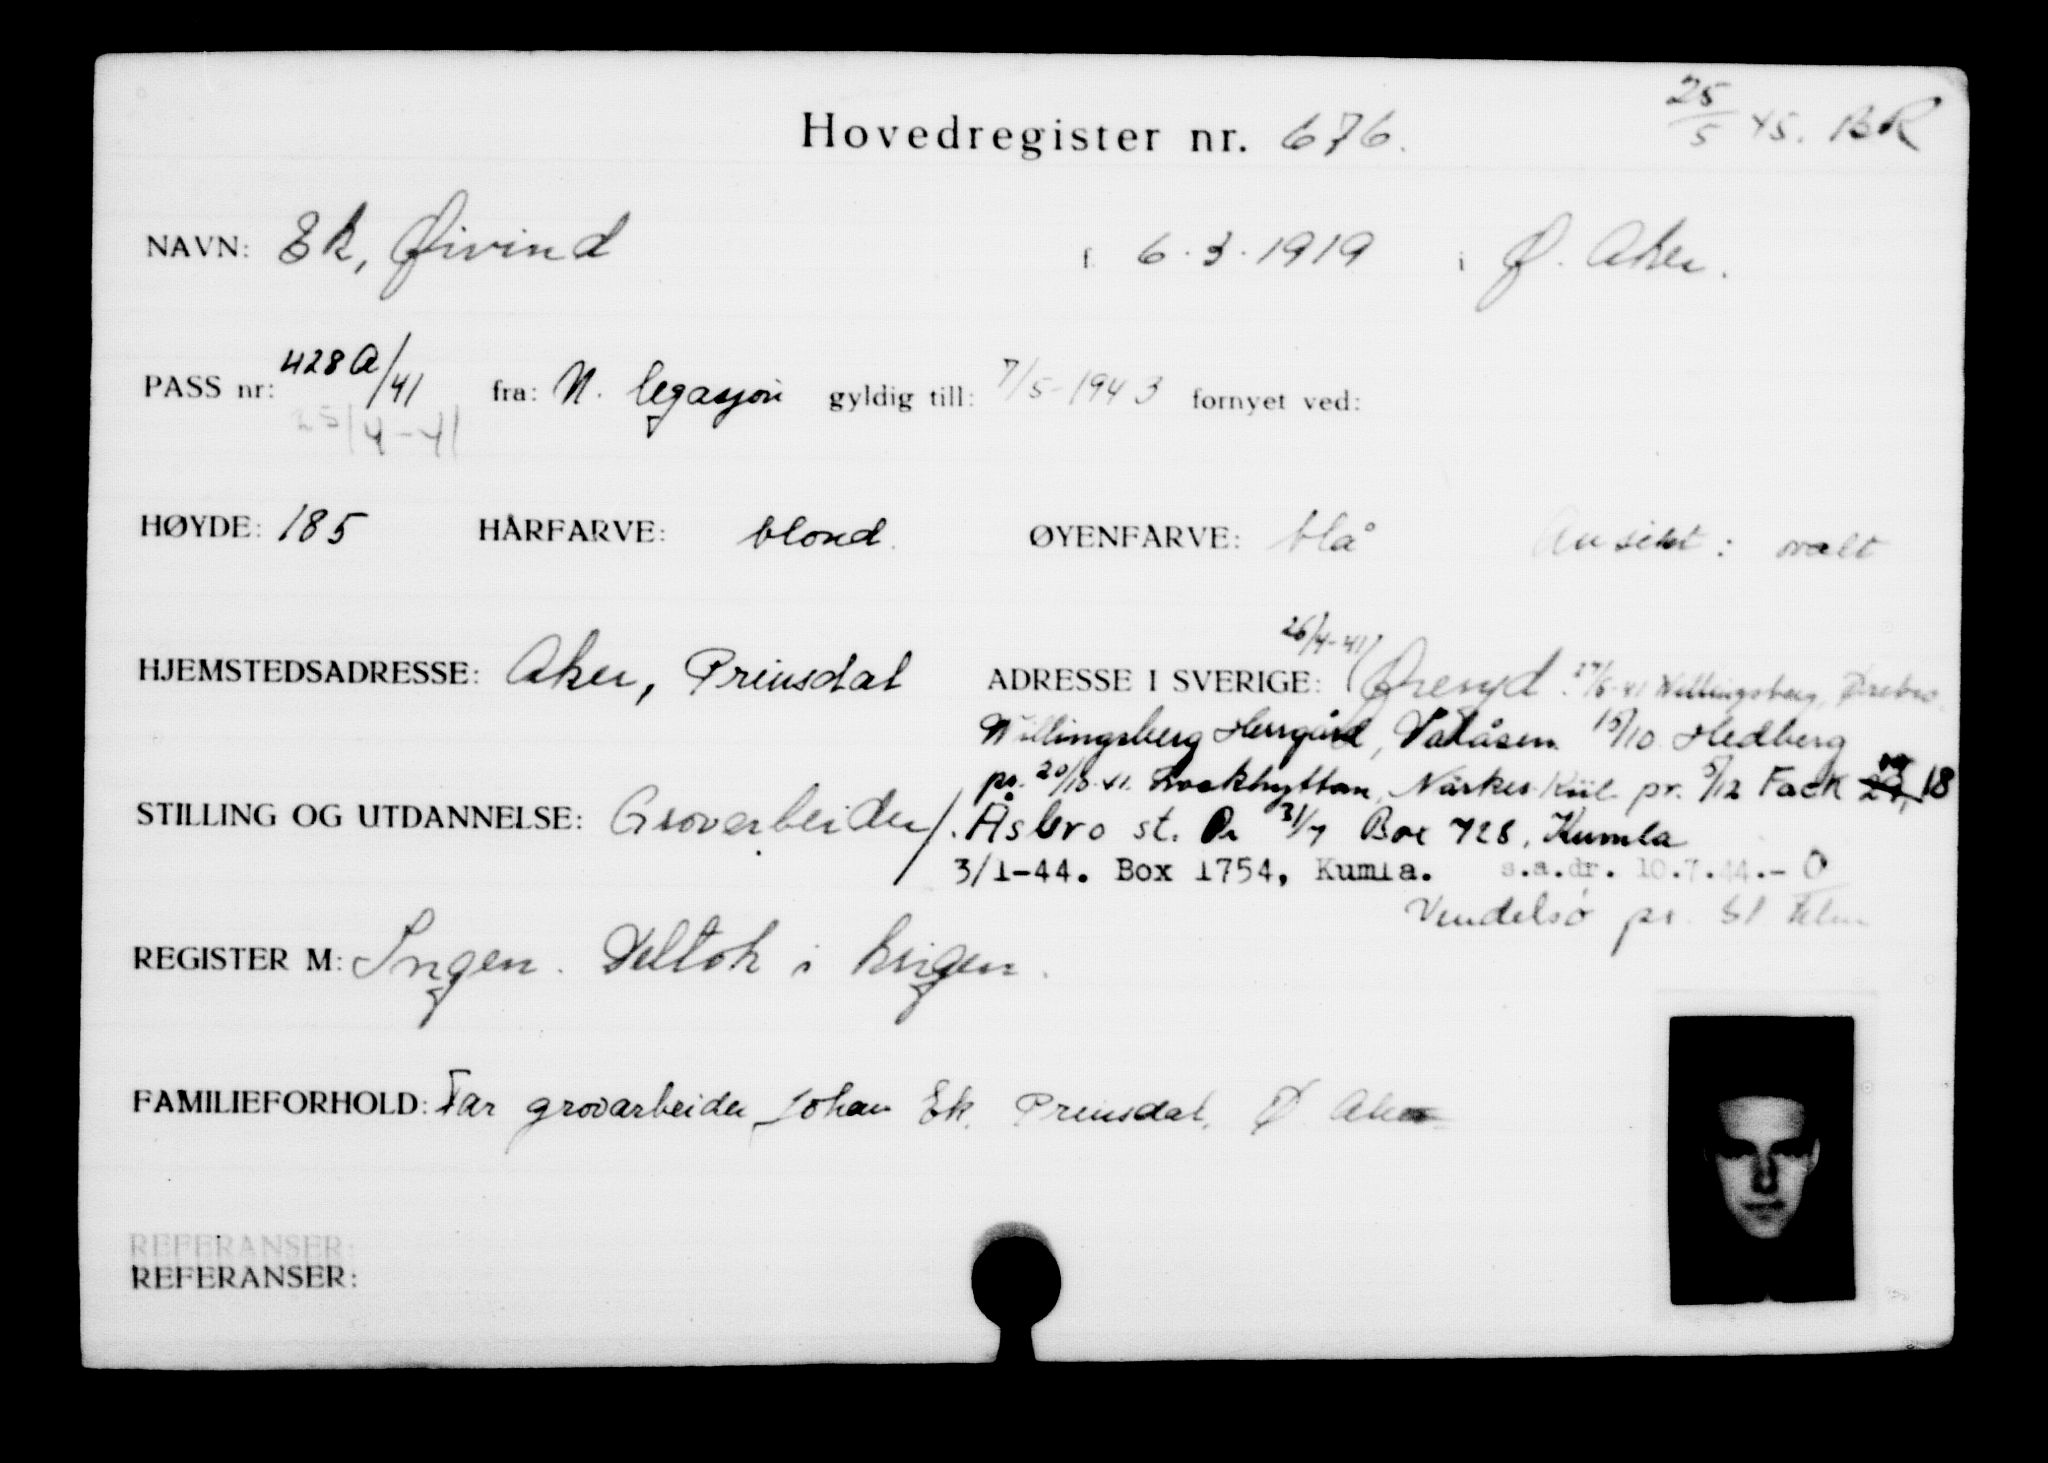 Hovedregister nr. 676. 25/5 45. BR
NAVN: Ek, Øivind f. 6.3.1919 i Ø. Aker.
PASS nr: 428A/41 fra: N. legasjon gyldig till: 7/5-1943 fornyet ved:
25/4-41
HØYDE: 185 HÅRFARVE: blond. ØYENFARVE: blå Ansikt: ovalt
26/4-41
HJEMSTEDSADRESSE: Aker, Prinsdal ADRESSE I SVERIGE: Øreryd. Willingsberg, Ørebro.
Willingsberg Herrgård, Valåsen 15/10 Hedberg
pr. Närkes Kiil pr. 5/12 Fack 18
STILLING OG UTDANNELSE: Grovarbeider. Åsbro st. 31/7 Box 728, Kumla
3/1-44. Box 1754, Kumla. s.a.dr. 10.7.44.-O
Vendelsö pr.
REGISTER M: Ingen. Deltok i krigen.
FAMILIEFORHOLD: Far grovarbeider Johan Ek, Prinsdal, Ø. Aker
REFERANSER:
REFERANSER: